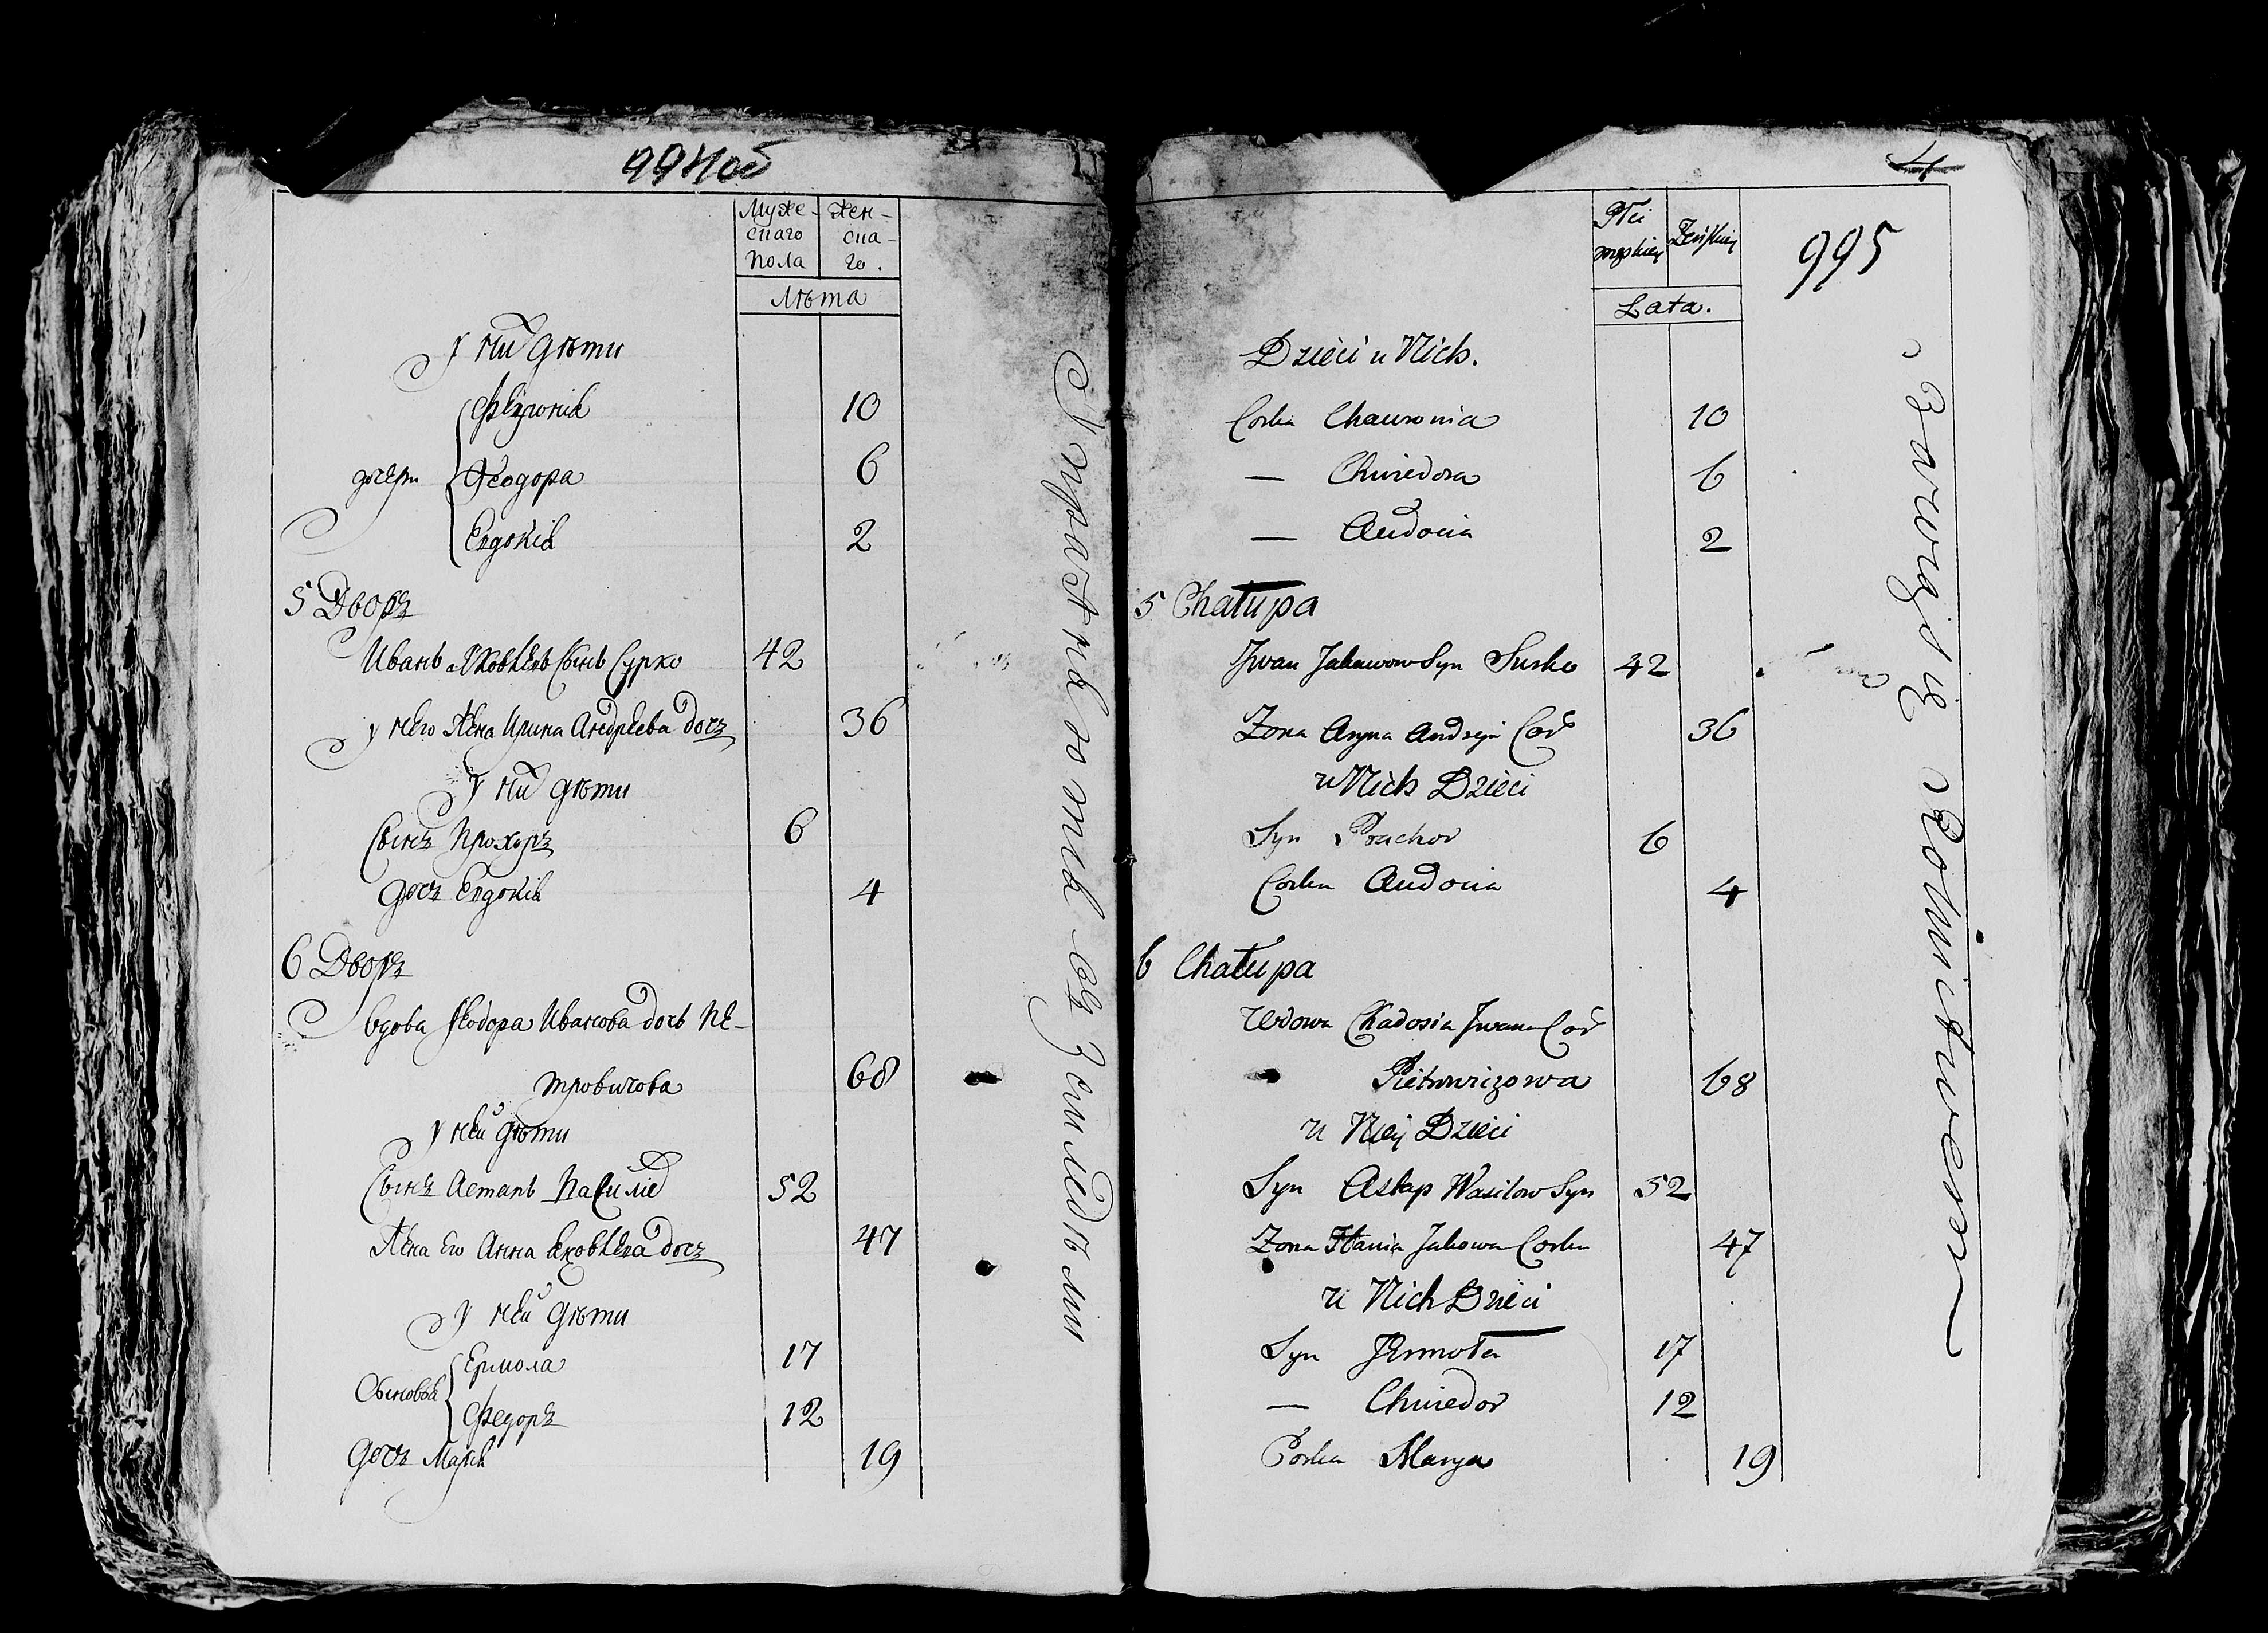 994об
Муже-
скаго
пола
Жен-
ска-
го.
Лѣта
У них дѣти
дочери
Ѳеодора 6
Евдокіа 2
5 Дворъ
Иванъ Яковлевъ Сынъ Сурко 42
у него Жена Ирина Андреева дочъ 36
У них дѣти
Сынъ Прохоръ 6
дочъ Евдокіа 4
6 Дворъ
вдова Ѳеодора Иванова дочь Пе-
тровичова 68
у ней дѣти
Сынъ Астапъ 52
Жена Его Анна Яковлева дочъ 47
у ней дѣти
Сыновья
Ермола 17
Федоръ 12
дочъ Маріа 19
4
995
Płci
męskiey
Żeńskiey
Lata.
Dzieci u Nich.
Corka Chauronia 10
— Chwiedora 6
— Audocia 2
5 Chałupa
Jwan Jakuwow Syn Surko 42
Zona Aryna Andreja Cor 36
u Nich Dzieci
Syn Prachor 6
Corka Audocia 4
6 Chałupa
Wdowa Chadosia Jwana Cor
Pietrowiczowa 68
u Niey Dzieci
Syn Astap Wasilow Syn 52
Zona Hania Jakowa Corka 47
u Nich Dzieci
Syn Jermoła 17
— Chwiedor 12
Corka Marya 19